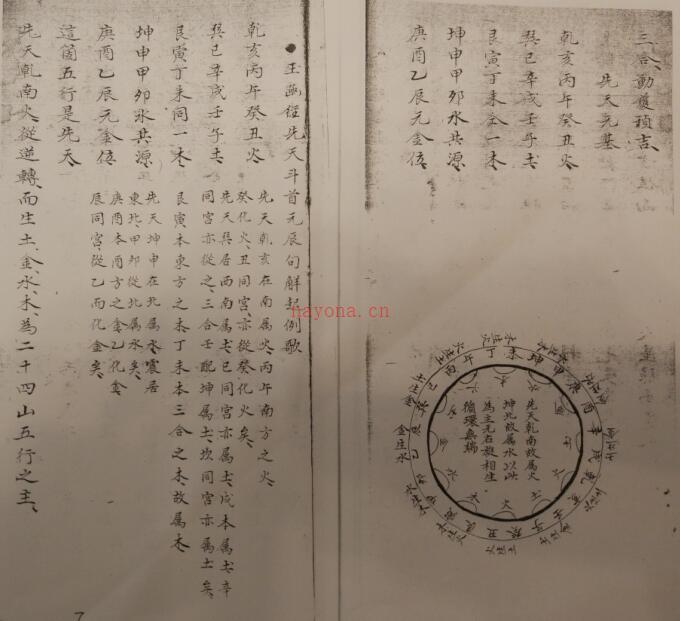 三合動處預吉、
先天元基
乾亥丙午癸丑火、
巽巳辛戌壬子土、
艮寅丁未全一木、
坤申甲卯水共源、
庚酉乙辰元金位、
先天乾南故属火
坤北故属水以此
為主元右旋相生
循環無端
金生水
●玉函經先天斗首元辰句解起例歌
乾亥丙午癸丑火、
先天乾亥在南属火、丙午南方之火、
癸化火、丑同宫、亦從癸化火矣、
巽巳辛戌壬子土、
先天巽居西南属土、巳同宫亦属土、戌本属土、辛
同宫亦從之、三合壬配坤属土、坎同宫亦属土矣、
艮寅丁未同一木、
艮寅、本東方之木、丁未本三合之木、故属木、
坤申甲卯水共源、
先天坤申在北属水、震居
東北、甲卯從北属水矣、
庚酉乙辰元金位、
庚酉本酉方之金、乙化金、
辰同宫、從乙而化金矣、
這箇五行是先天、
先天乾南火、從逆轉、而生土、金、水、木、為二十四山五行之主、
7
nayona.cn